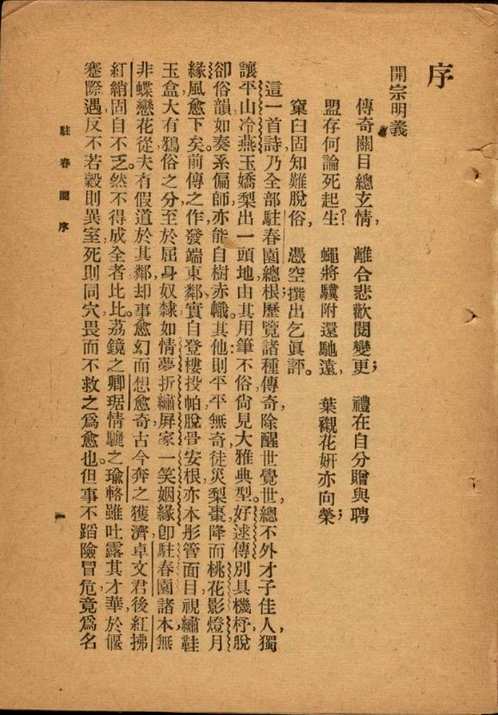 序
開宗明義
傳奇關目總玄情，離合悲歡閱變更；禮在自分贈與聘
盟存何論死起生？蠅將驥附還馳遠，葉襯花妍亦向榮；
窠臼固知難脫俗，憑空撰出乞眞評。
這一首詩，乃全部駐春園總根，歷覽諸種傳奇，除醒世覺世，總不外才子佳人，獨
讓平山冷燕玉嬌梨出一頭地，由其用筆不俗，尙見大雅典型。好逑傳別具機杼，脫
卻俗韻，如秦系偏師，亦能自樹赤幟。其他則平平無奇，徒災梨棗，降而桃花影燈月
緣，風愈下矣。前傳之作，發端東鄰，實自登樓投帕，脫骨安根，亦本彤管，面目視繡鞋
玉盒，大有鴉俗之分，至於屈身奴隸，如情夢折，繡屏家一笑姻緣，卽駐春園諸本，無
非蝶戀花從，夫有假道於其鄰，却事愈幻而想愈奇，古今奔之獲濟，卓文君後，紅拂
紅綃，固自不乏，然不得成全者比比。荔鏡之卿琚，情驪之瑜輅，雖吐露其才華，於偃
蹇際遇，反不若穀則異室，死則同穴，畏而不救之爲愈也。但事不蹈險冒危，竟爲名
駐春園序
一